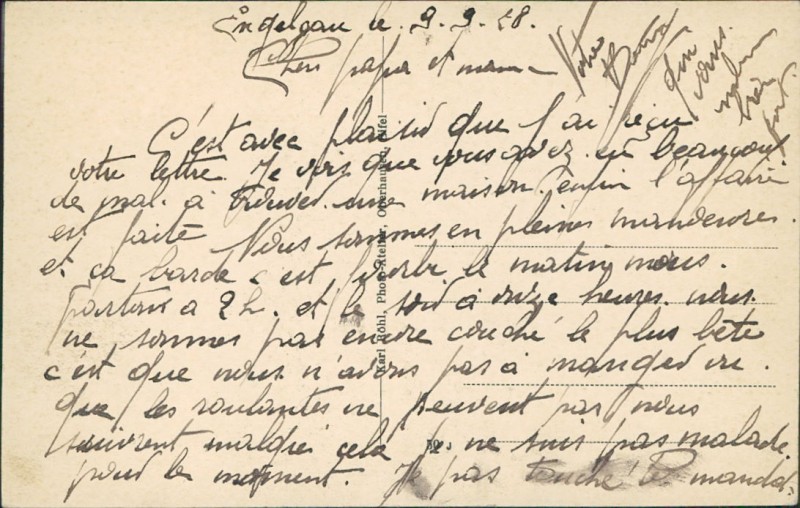 Engelgau le. 9. 9. 28.
Chers papa et maman
C'est avec plaisir que j'ai reçu
votre lettre. Je vois que vous avez eu beaucoup
de mal. a trouver. une maison. enfin l'affaire
est faite Nous sommes en pleines manoeuvres.
et ca barde c est le matin, nous.
partons a 2 h. et le soir à onze heures. nous.
ne sommes pas encore couché le plus bete
c'est que nous n'avons pas à manger vu.
que les roulantes ne peuvent pas nous
suivrent malgré cela je ne suis pas malade.
pour le moment. Je pas touché le mandat.
Votre
qui
vous.
bien
fort.
Karl Röhl, Photo-Atelier, Oberhausen, Eifel